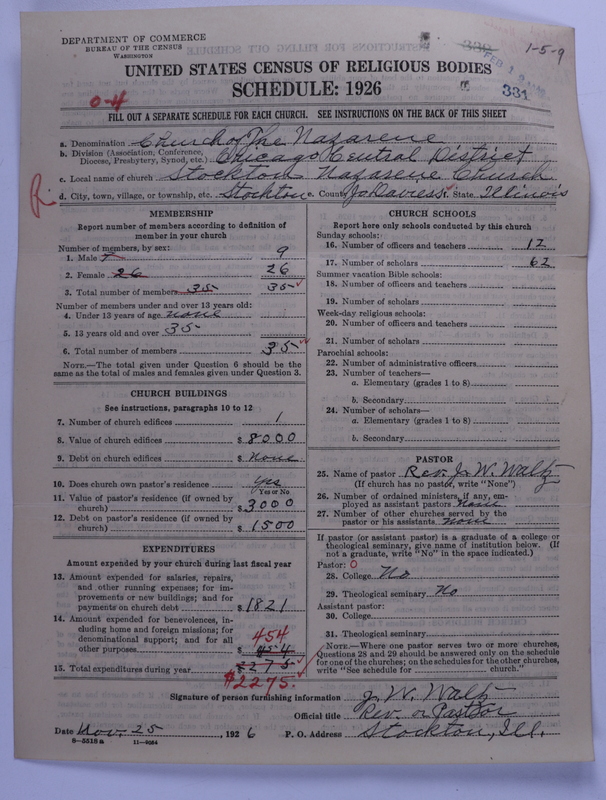 DEPARTMENT OF COMMERCE
BUREAU OF THE CENSUS
WASHINGTON
332
1-5-9
FEB 12
UNITED STATES CENSUS OF RELIGIOUS BODIES
SCHEDULE: 1926
331
0-4
FILL OUT A SEPARATE SCHEDULE FOR EACH CHURCH. SEE INSTRUCTIONS ON THE BACK OF THIS SHEET
a. Denomination Church of The Nazarene
b. Division (Association, Conference, Diocese, Presbytery, Synod, etc.) Chicago Central District
c. Local name of church Stockton Nazarene Church
d. City, town, village, or township, etc. Stockton e. County Jo Daviess f. State Illinois
MEMBERSHIP
Report number of members according to definition of
member in your church
Number of members, by sex:
1. Male 9
2. Female 26 26
3. Total number of members 35 35
Number of members under and over 13 years old:
4. Under 13 years of age none
5. 13 years old and over 35
6. Total number of members 35
NOTE.—The total given under Question 6 should be
same as the total of males and females given under Question 3.
CHURCH BUILDINGS
See instructions, paragraphs 10 to 12
7. Number of church edifices 1
8. Value of church edifices $ 8000
9. Debt on church edifices $ none
10. Does church own pastor's residence yes
(Yes or No)
11. Value of pastor's residence (if owned by
church) $ 3000
12. Debt on pastor's residence (if owned by
church) $ 1500
EXPENDITURES
Amount expended by your church during last fiscal year
13. Amount expended for salaries, repairs,
and other running expenses; for im-
provements or new buildings; and for
payments on church debt $ 1821
14. Amount expended for benevolences, in-
cluding home and foreign missions; for
denominational support; and for all
other purposes $ 454
454
15. Total expenditures during year $ 2275
$2275.
CHURCH SCHOOLS
Report here only schools conducted by this church
Sunday schools:
16. Number of officers and teachers 12
17. Number of scholars 62
Summer vacation Bible schools:
18. Number of officers and teachers
19. Number of scholars
Week-day religious schools:
20. Number of officers and teachers
21. Number of scholars
Parochial schools:
22. Number of administrative officers
23. Number of teachers—
a. Elementary (grades 1 to 8)
b. Secondary
24. Number of scholars—
a. Elementary (grades 1 to 8)
b. Secondary
PASTOR
25. Name of pastor Rev. J. W. Waltz
(If church has no pastor, write "None")
26. Number of ordained ministers, if any, em-
ployed as assistant pastors none
27. Number of other churches served by the
pastor or his assistants none
If pastor (or assistant pastor) is a graduate of a college or
theological seminary, give name of institution below. (If
not a graduate, write "No" in the space indicated.)
Pastor: 0
28. College No
29. Theological seminary No
Assistant pastor:
30. College
31. Theological seminary
NOTE.—Where one pastor serves two or more churches,
Questions 28 and 29 should be answered only on the schedule
for one of the churches; on the schedules for the other churches,
write "See schedule for church."
Signature of person furnishing information J. W. Waltz
Official title Rev. or Pastor
Date Nov. 25, 1926 P. O. Address Stockton, Ill.
8-5518a 11-9054